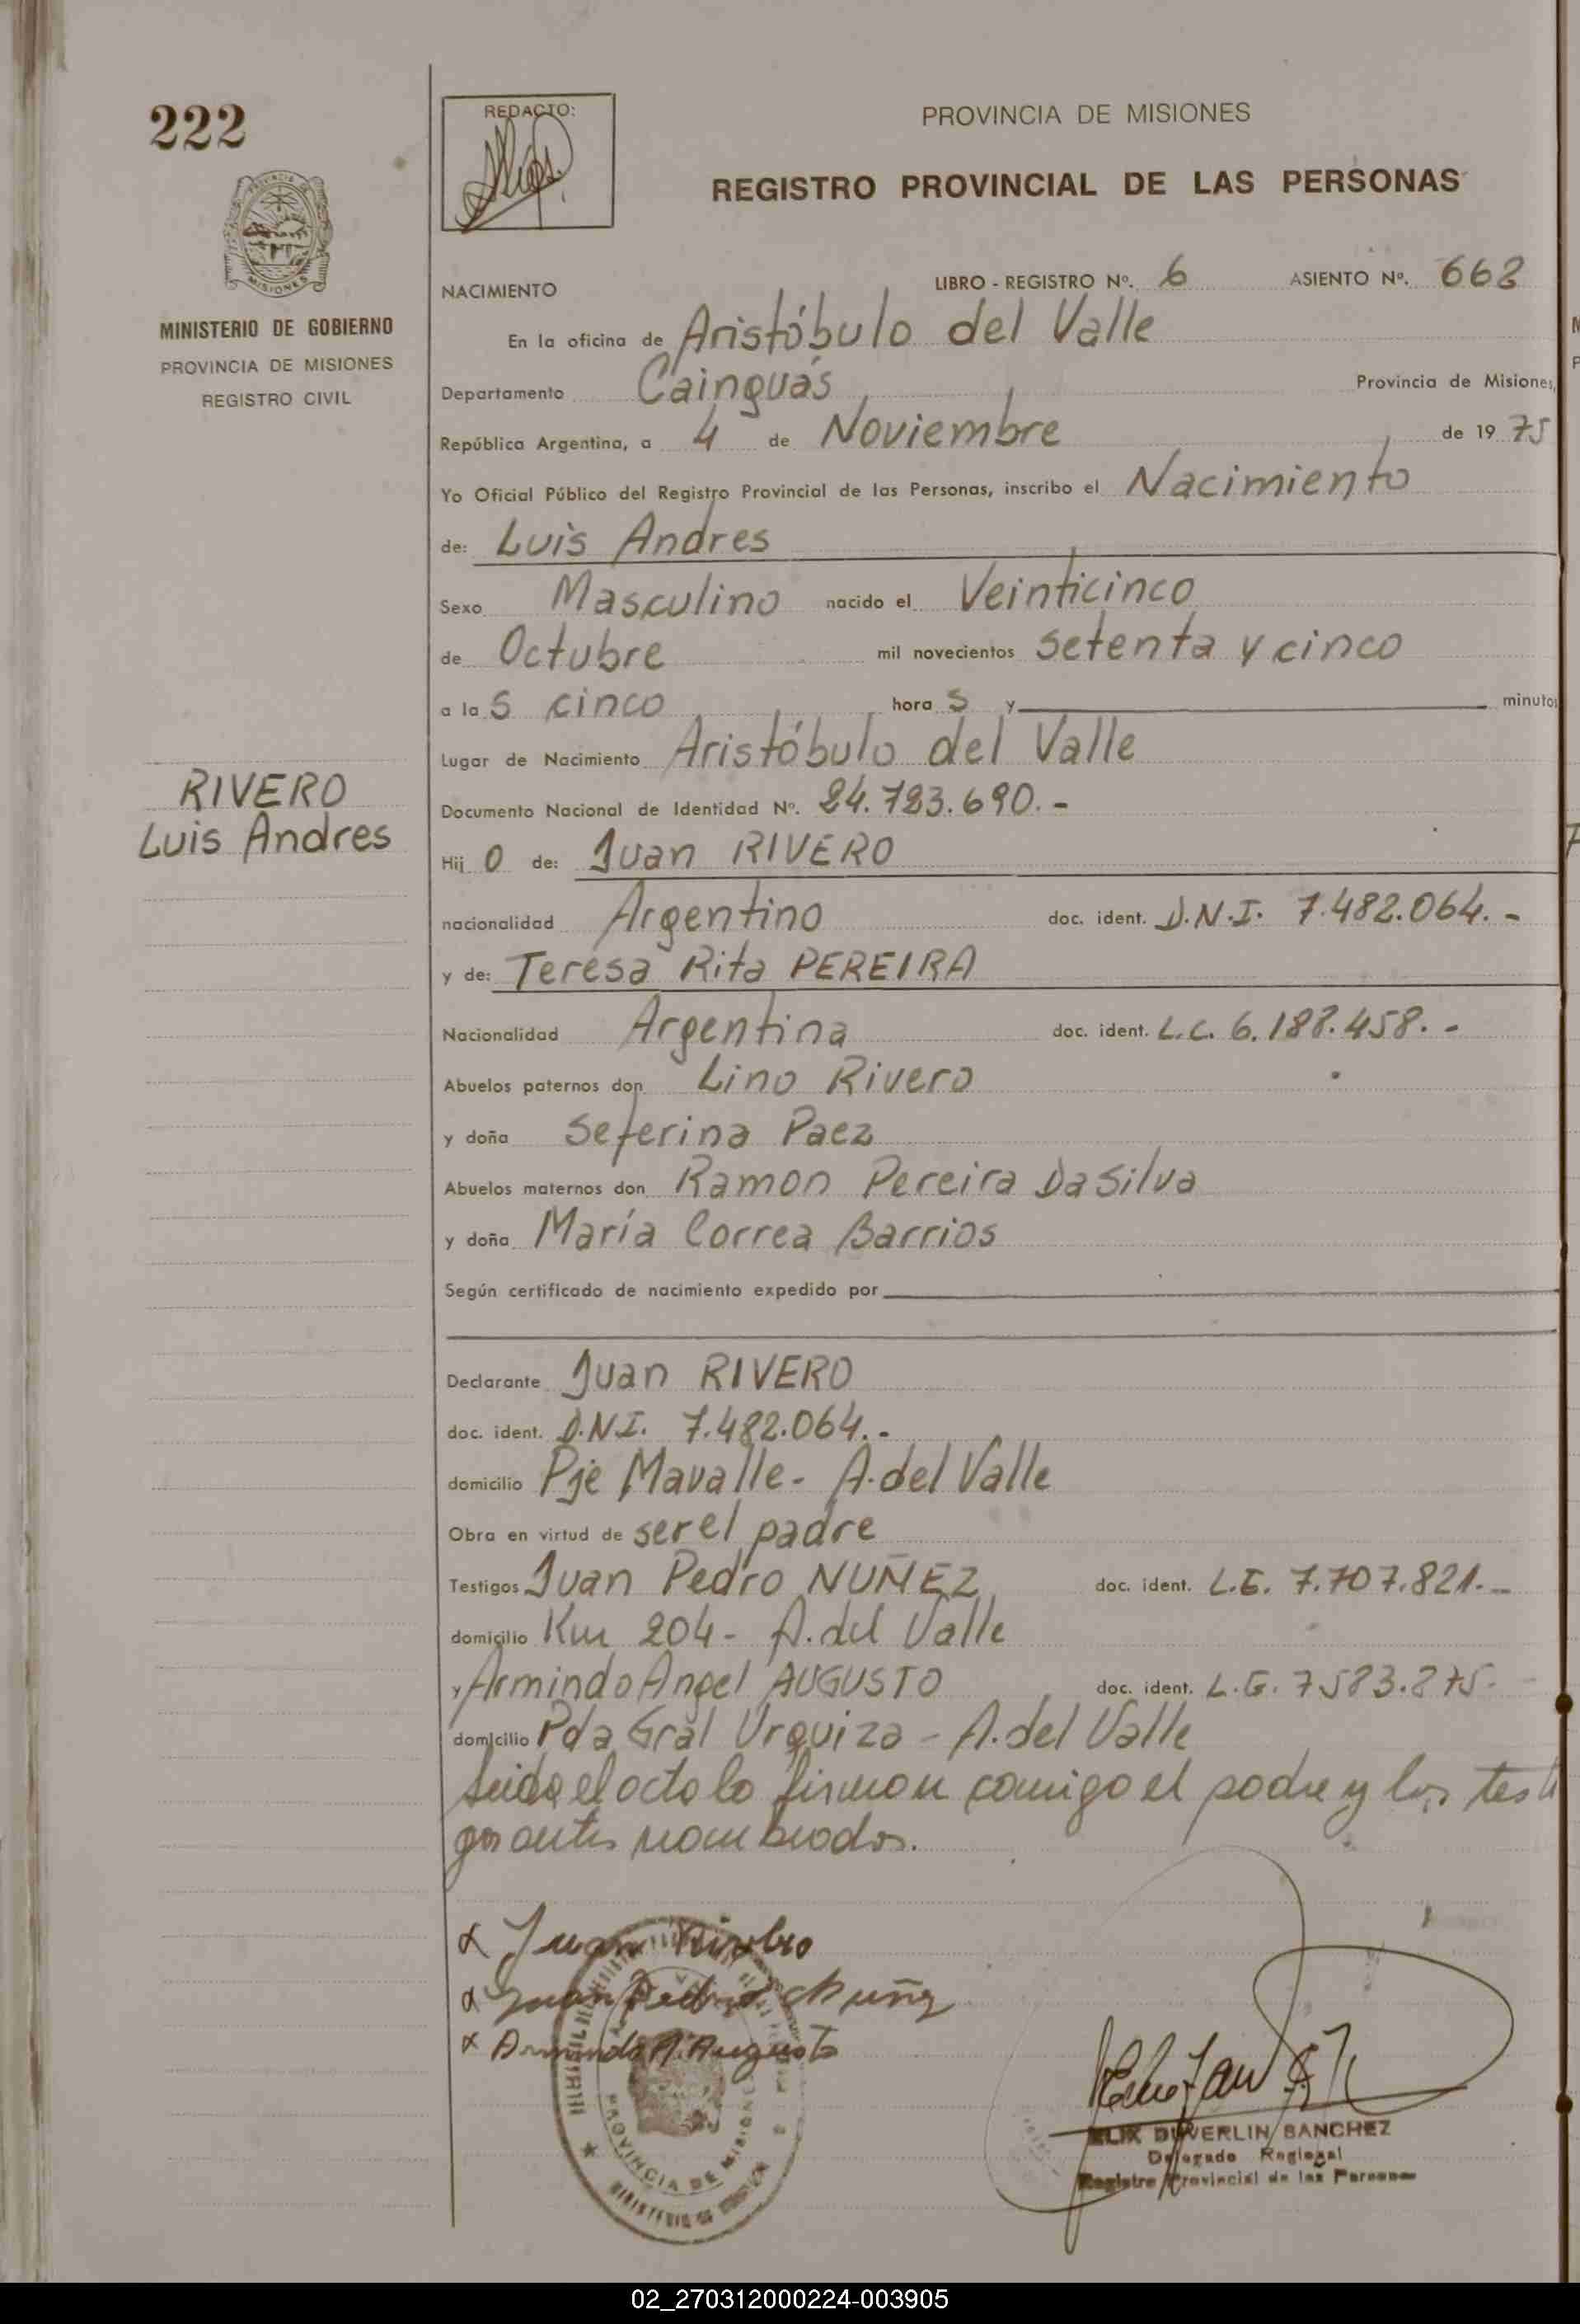 222
REDACTO:
PROVINCIA DE MISIONES
REGISTRO PROVINCIAL DE LAS PERSONAS
PROVINCIA DE
MISIONES
MINISTERIO DE GOBIERNO
PROVINCIA DE MISIONES
REGISTRO CIVIL
NACIMIENTO LIBRO - REGISTRO Nº. 6 ASIENTO Nº. 662
En la oficina de Aristóbulo del Valle
Departamento Cainguás Provincia de Misiones,
República Argentina, a 4 de Noviembre de 1975
Yo Oficial Público del Registro Provincial de las Personas, inscribo el Nacimiento
de: Luis Andres
Sexo Masculino nacido el Veinticinco
de Octubre mil novecientos setenta y cinco
a las cinco horas y minutos
Lugar de Nacimiento Aristóbulo del Valle
RIVERO
Luis Andres
Documento Nacional de Identidad Nº. 24.723.690.-
Hijo de: Juan RIVERO
nacionalidad Argentino doc. ident. D.N.I. 7.482.064.-
y de: Teresa Rita PEREIRA
Nacionalidad Argentina doc. ident. L.C. 6.188.458.-
Abuelos paternos don Lino Rivero
y doña Seferina Paez
Abuelos maternos don Ramon Pereira Da Silva
y doña María Correa Barrios
Según certificado de nacimiento expedido por
Declarante Juan RIVERO
doc. ident. D.N.I. 7.482.064.-
domicilio Pje Mavalle - A. del Valle
Obra en virtud de ser el padre
Testigos Juan Pedro NUÑEZ doc. ident. L.E. 7.707.821.-
domicilio Km 204 - A. del Valle
y Armindo Angel AUGUSTO doc. ident. L.E. 7583.275.-
domicilio Pda Gral Urquiza - A. del Valle
Leida el acta la firman comigo el padre y los testi
gos antes nombrados.
Juan Rivero
Juan Pedro Nuñez
Armindo A. Augusto
PROVINCIA DE MISIONES
ELIX DUVERLIN SANCHEZ
Delegado Regional
Registro Provincial de las Personas
02_270312000224-003905